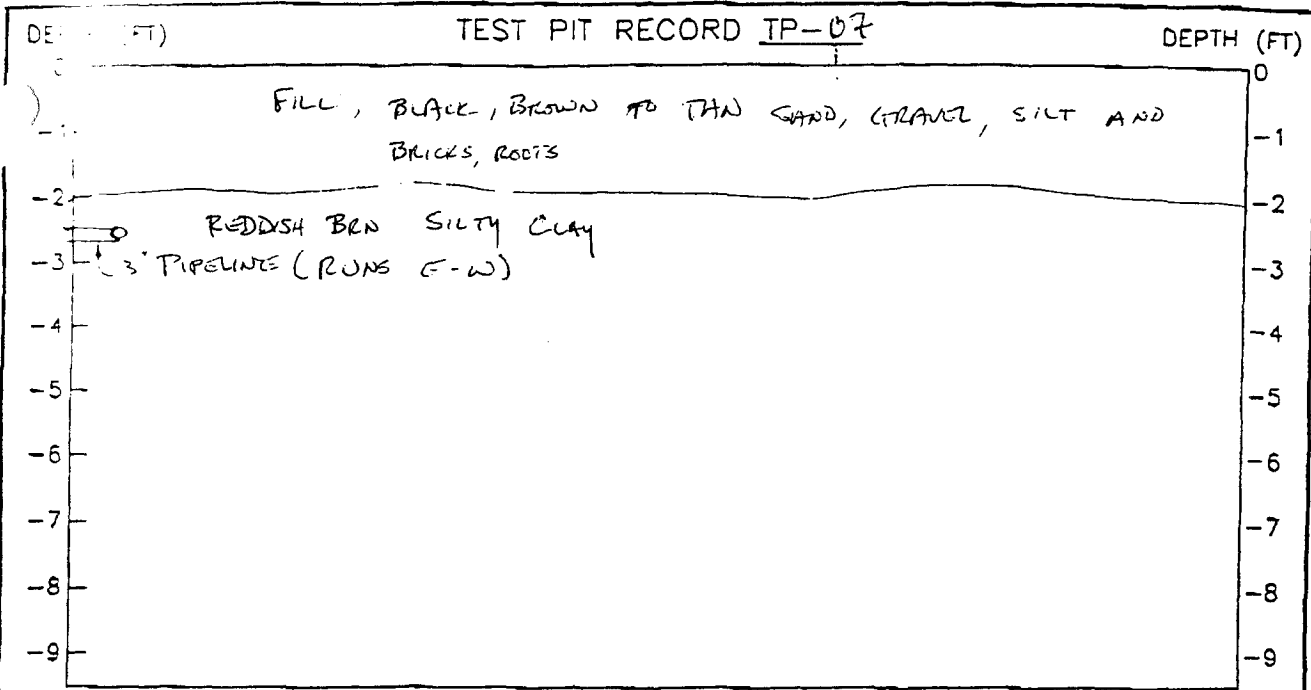 TEST PIT RECORD TP-07
DEPTH (FT)
0
FILL, BLACK, BROWN TO TAN SAND, GRAVEL, SILT AND
BRICKS, ROOTS
-1
-1
-2
-2
REDDISH BRN SILTY CLAY
-3
3" PIPELINE (RUNS E-W)
-3
-4
-4
-5
-5
-6
-6
-7
-7
-8
-8
-9
-9